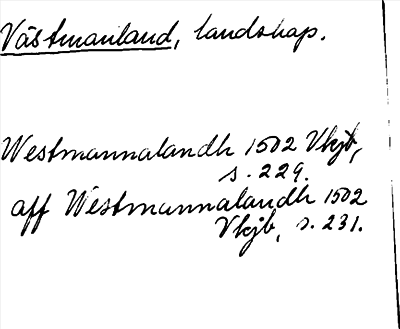 Västmanland, landskap.
Westmannalandh 1502 Vkjb,
s. 229.
aff Westmannalandh 1502
Vkjb, s. 231.